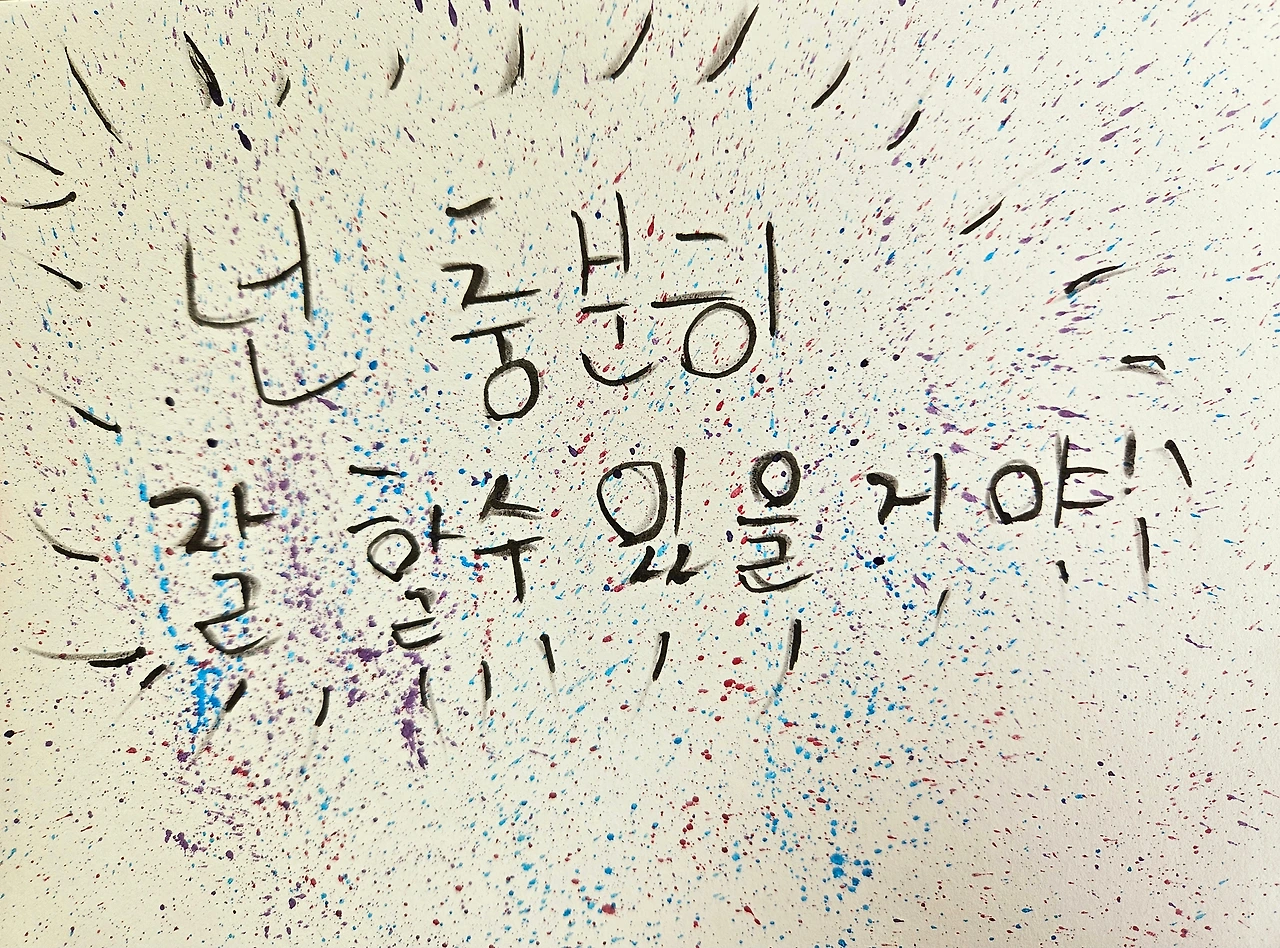 넌 충분히
잘 할수 있을 거야!!